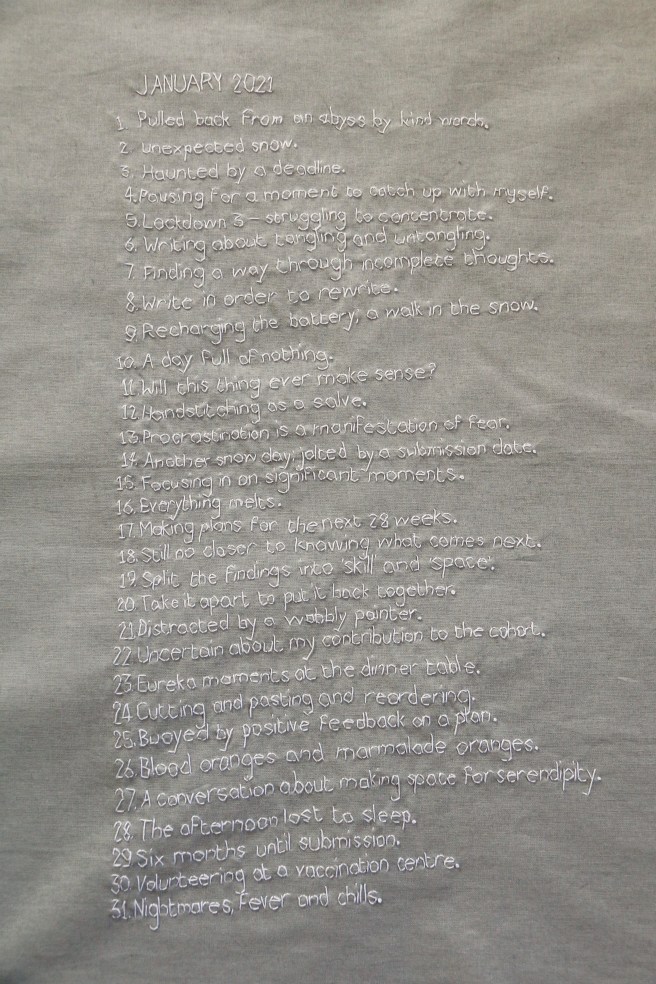 JANUARY 2021
1. Pulled back from an abyss by kind words.
2. unexpected snow.
3. Haunted by a deadline.
4. Pausing for a moment to catch up with myself.
5. Lockdown 3 – struggling to concentrate.
6. Writing about tangling and untangling.
7. Finding a way through incomplete thoughts.
8. Write in order to rewrite.
9. Recharging the battery, a walk in the snow.
10. A day full of nothing.
11. Will this thing ever make sense?
12. Handstitching as a salve.
13. Procrastination is a manifestation of fear.
14. Another snow day, jolted by a submission date.
15. Focusing in on significant moments.
16. Everything melts.
17. Making plans for the next 28 weeks.
18. Still no closer to knowing what comes next.
19. Split the findings into 'skill and space'.
20. Take it apart to put it back together.
21. Distracted by a wobbly painter.
22. Uncertain about my contribution to the cohort.
23. Eureka moments at the dinner table.
24. Cutting and pasting and reordering.
25. Buoyed by positive feedback on a plan.
26. Blood oranges and marmalade oranges.
27. A conversation about making space for serendipity.
28. The afternoon lost to sleep.
29. Six months until submission.
30. Volunteering at a vaccination centre.
31. Nightmares, fever and chills.